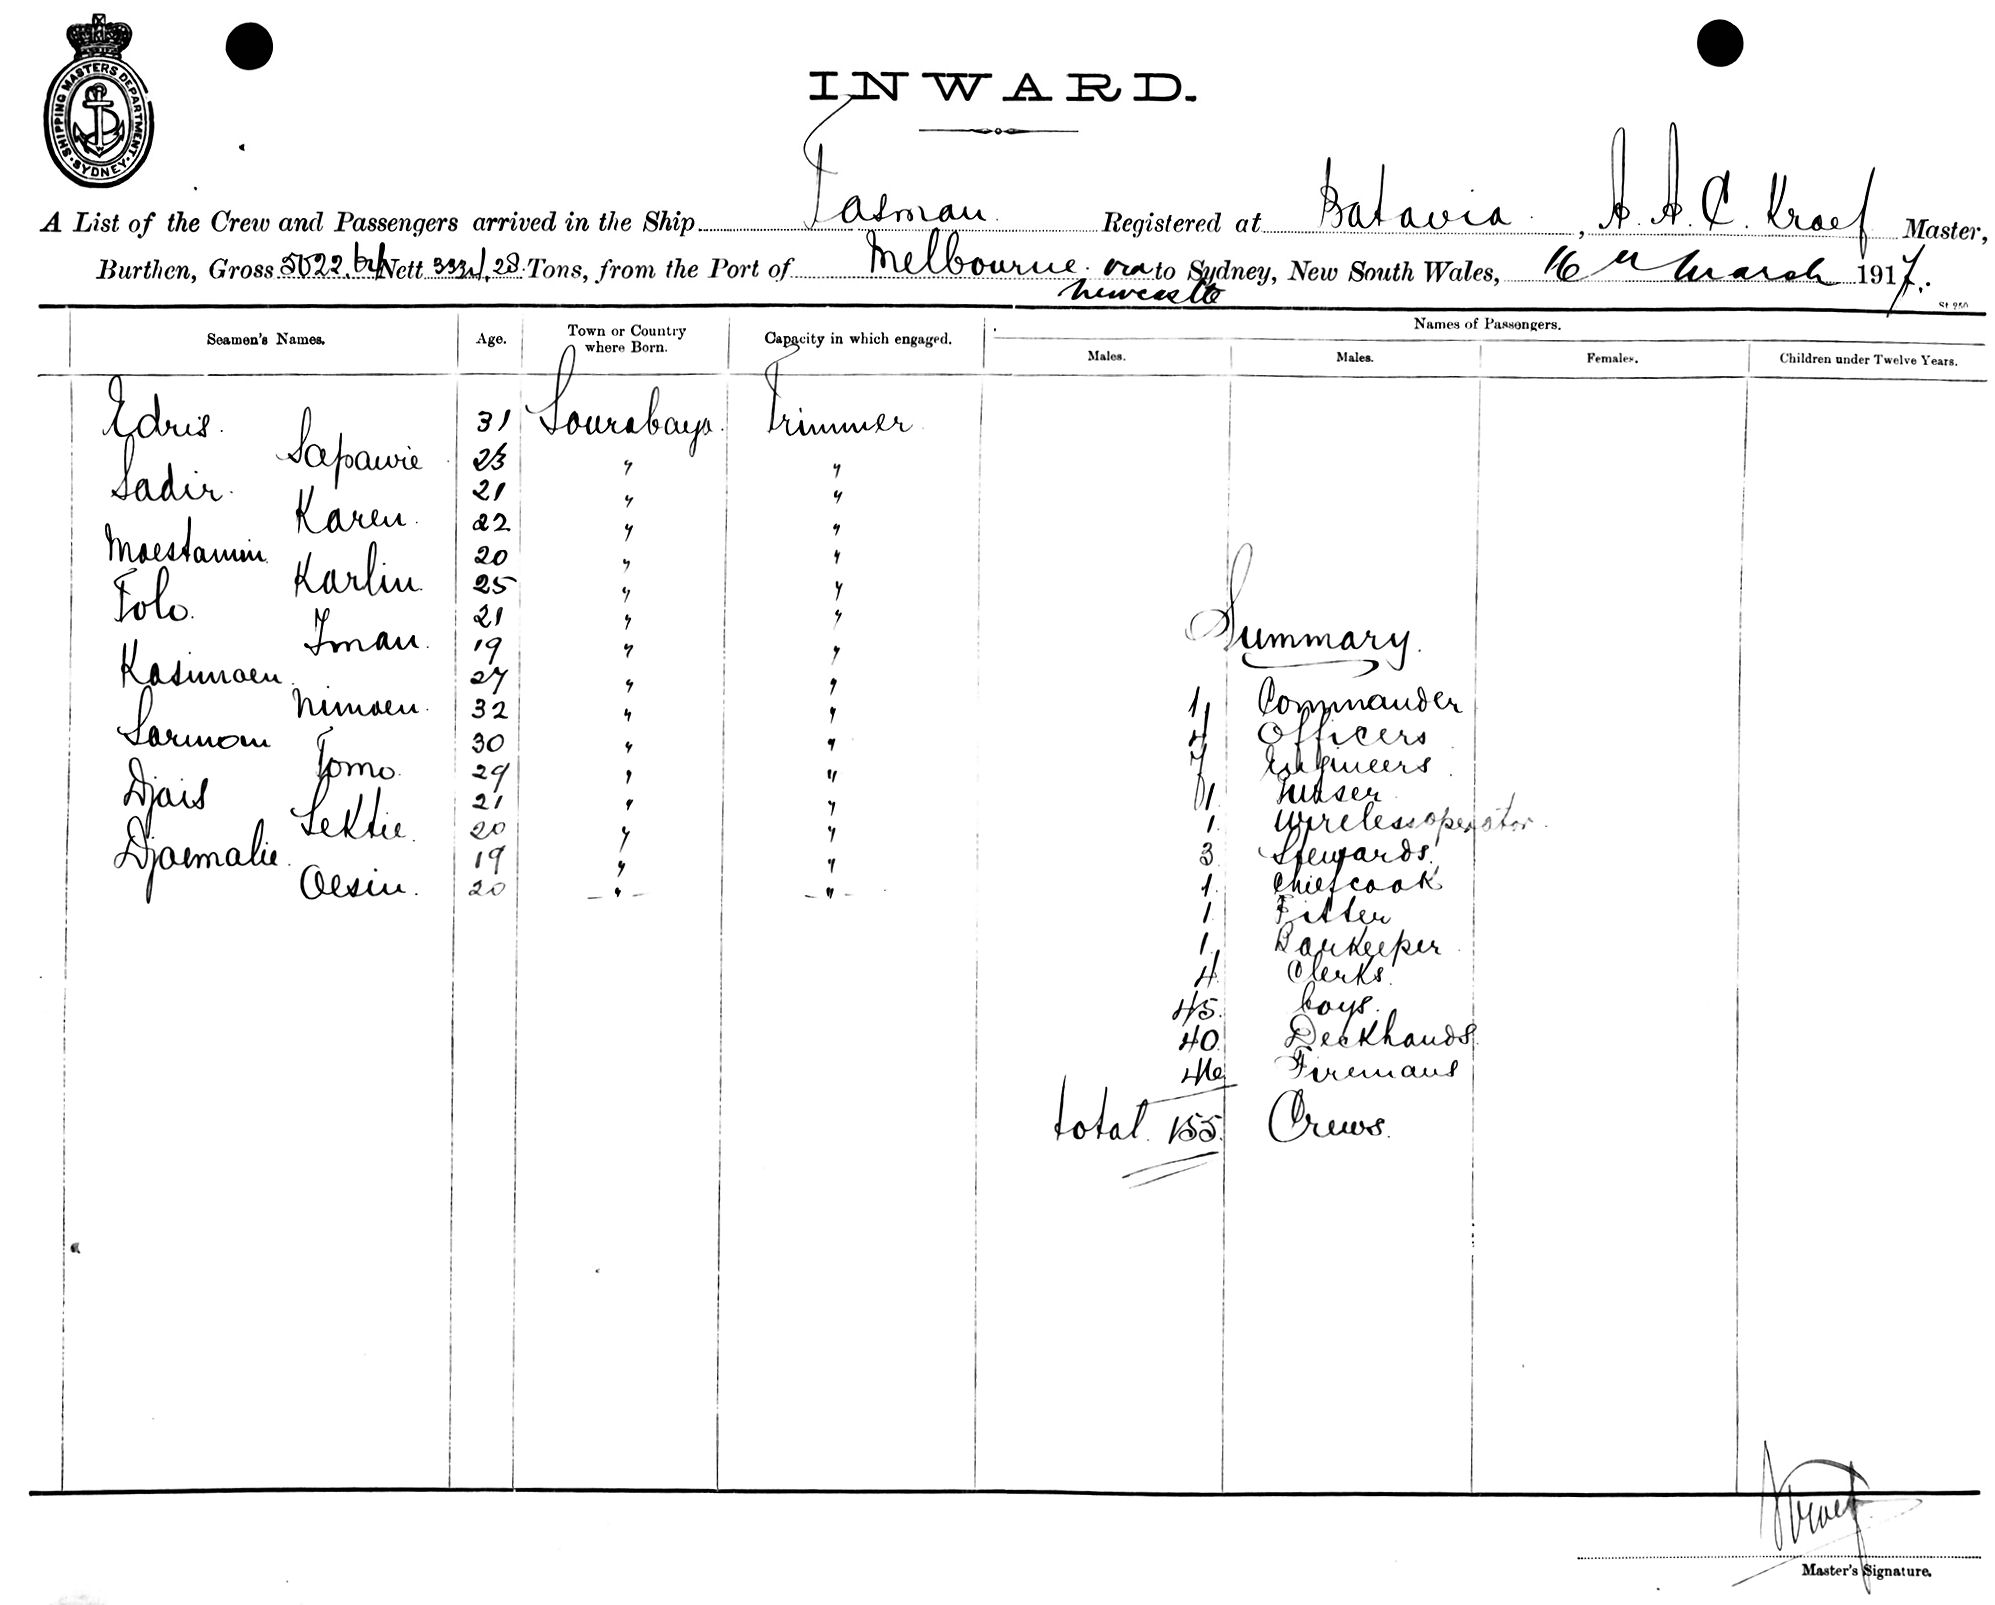 SHIPPING MASTERS DEPARTMENT. SYDNEY.
INWARD.
A List of the Crew and Passengers arrived in the Ship Tasman. Registered at Batavia, A. A. C. Kroef Master,
Burthen, Gross 5022 Nett Tons, from the Port of Melbourne via to Sydney, New South Wales, 16 March 1917.
Newcastle
Seamen's Names. Age. Town or Country where Born. Capacity in which engaged. Names of Passengers.
Males. Males. Females. Children under Twelve Years.
Edris. 31 Sourabaya. Trimmer
Sapawie 23 " "
Sadir. 21 " "
Karen. 22 " "
Moestamin. 20 " "
Karlin. 25 " "
Tolo. 21 " "
Iman. 19 " "
Kasimoen. 27 " "
Nimoen. 32 " "
Sarmom 30 " "
Tomo. 29 " "
Djais 21 " "
Sektie. 20 " "
Djaemalie. 19 " "
Oesin. 20 " "
Summary.
1 Commander
4 Officers
7 Engineers
1 Purser
1. Wirelessoperator.
3 Stewards
1. Chiefcook
1. Fitter
1. Barkeeper
4 Clerks.
45. boys.
40 Deckhands
46 Firemans
total. 155. Crews.
Kroef
Master's Signature.